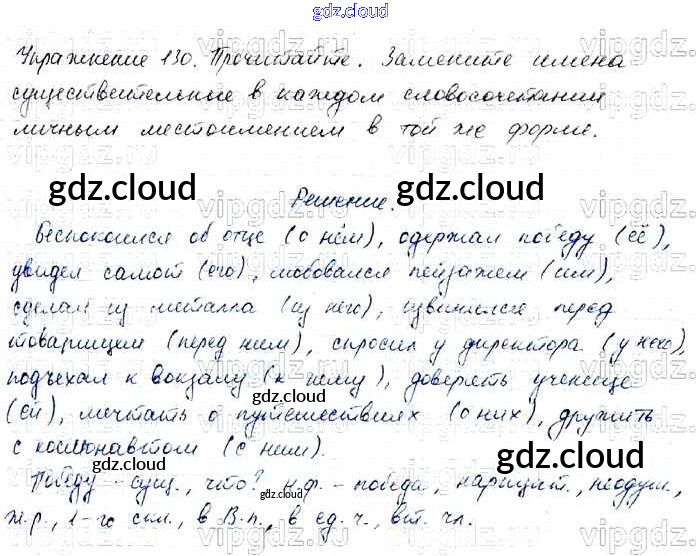 gdz.cloud
Упражнение 130. Прочитайте. Замените имена
существительные в каждом словосочетании
личным местоимением в той же форме.
gdz.cloud gdz.cloud
Решение.
Беспокоился об отце (о нём), одержал победу (её),
увидел самолёт (его), любовался пейзажем (им),
сделал из металла (из него), извинился перед
товарищем (перед ним), спросил у директора (у него),
подъехал к вокзалу (к нему), доверять ученице
(ей), мечтать о путешествиях (о них), дружить
с космонавтом (с ним).
gdz.cloud gdz.cloud
Победу - сущ., что? н.ф. - победа, нарицат., неодуш.,
ж.р., 1-го скл., в В.п., в ед.ч., вт. чл.
gdz.cloud
gdz.cloud gdz.cloud
vipgdz.ru